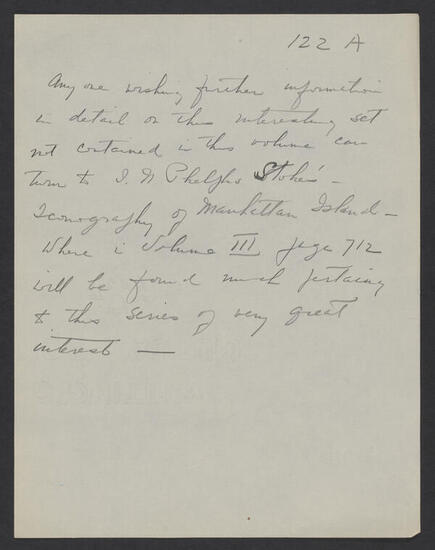 122 A
Any one wishing further information
in detail on this interesting set
not contained in this volume can
turn to I. N Phelphs Stokes' -
Iconography of Manhattan Island -
Where in Volume III page 712
will be found much pertaining
to this series of very great
interest —